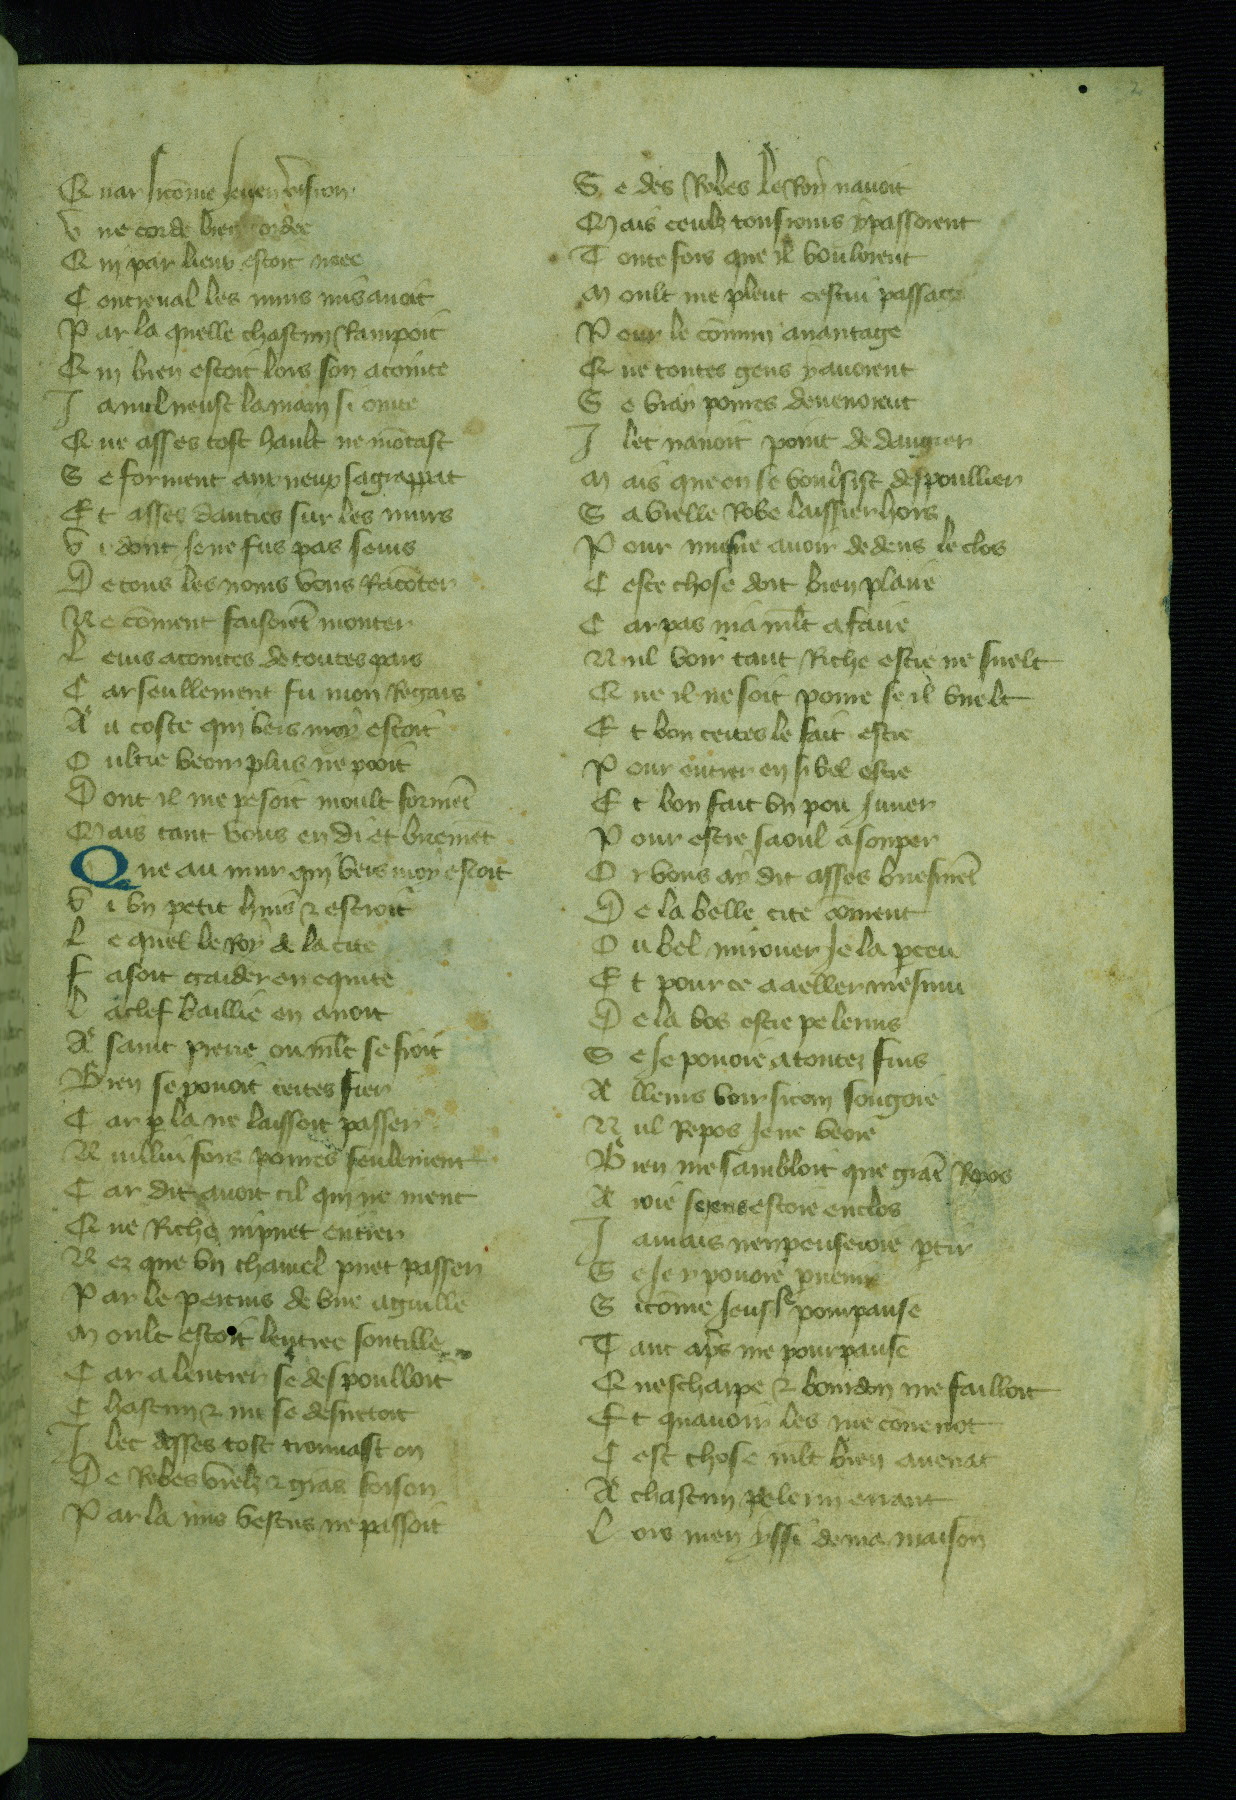 2
Quar sicōme leu en vision
Vne corde bien cordee
Qui par lieux estoit neee
Contreual les murs mis auoit
Par la quelle chascun Rampoit
Qui bien estoit lors son acointe
Ia nul neust la main si ointe
Que asses tost hault ne mōtast
Se forment aux neux sagrappat
Et asses dautres sur les murs
Vi dont Je ne fus pas seurs
De tous les noms vous Racōter
Ne cōment faisoiēt monter
Leurs acointes de toutes pars
Car seullement fu mon Regars
Au coste qui vers moy estoit
Oultre veoir plus ne pooit
Dont il me pesoit moult formēt
Mais tant vous en di et briemēt
Que au mur qui vers moy estoit
Vi vn petit huis & estroit
Le quel le Roy de la cite
Fasoit garder en equite
La clef baillie en auoit
A saint pierre ou mlt se fioit
Bien se pouoit certes fier
Car p la ne laissoit passer
Nullui fors poures seulement
Car dit auoit cil qui ne ment
Que Riche ni puet entrer
Nez que vn chamel puet passer
Par le pertuis de vne aguille
Moult estoit lentree soutille
Car a lentrer se despoulloit
Chascun & nu se desuetoit
Ilec asses tost trouuast on
De Robes vielz & grās foison
Par la nus vestus ne passoit
Se des Robes le Roy nauoit
Mais ceulz tousiours y passoient
Toutefois que il vouloient
Moult me pleut cestui passage
Pour le cōmun auantage
Que toutes gens y auoient
Se vray poures deuenoient
Ilec nauoit point de dangier
Mais que on se voulsist despoullier
Sa vielle Robe laissier hors
Pour nueue auoir dedens le clos
Ceste chose doit bien plaire
Car pas ni a mlt a faire
Nul voir tant Riche estre ne suelt
Que il ne soit poure se il vuelt
Et bon certes le fait estre
Pour entrer en si bel estre
Et bon fait vn pou Juner
Pour estre saoul a souper
Or vous ay dit asses briefmēt
De la belle cite coment
Ou bel mirouer Je la pceu
Et pour ce a aller mesmu
De la vos estre pelerins
Se Je pouoie a toutez fins
Alleurs voir sicom songoie
Nul Repos Je ne veoie
Bien me sambloit que grāt Repos
Aroie se ens estoie enclos
Iamais nen penseroie ptir
Se Je y pouoie puenir
Sicōme Jeus sˢ pompause
Tant aps me pourpause
Quescharpe & bourdon me failloit
Et quauoir les me cōuenoit
Cest chose mlt bien auenāt
A chascun pelerin errant
Lors men yssi de ma maison